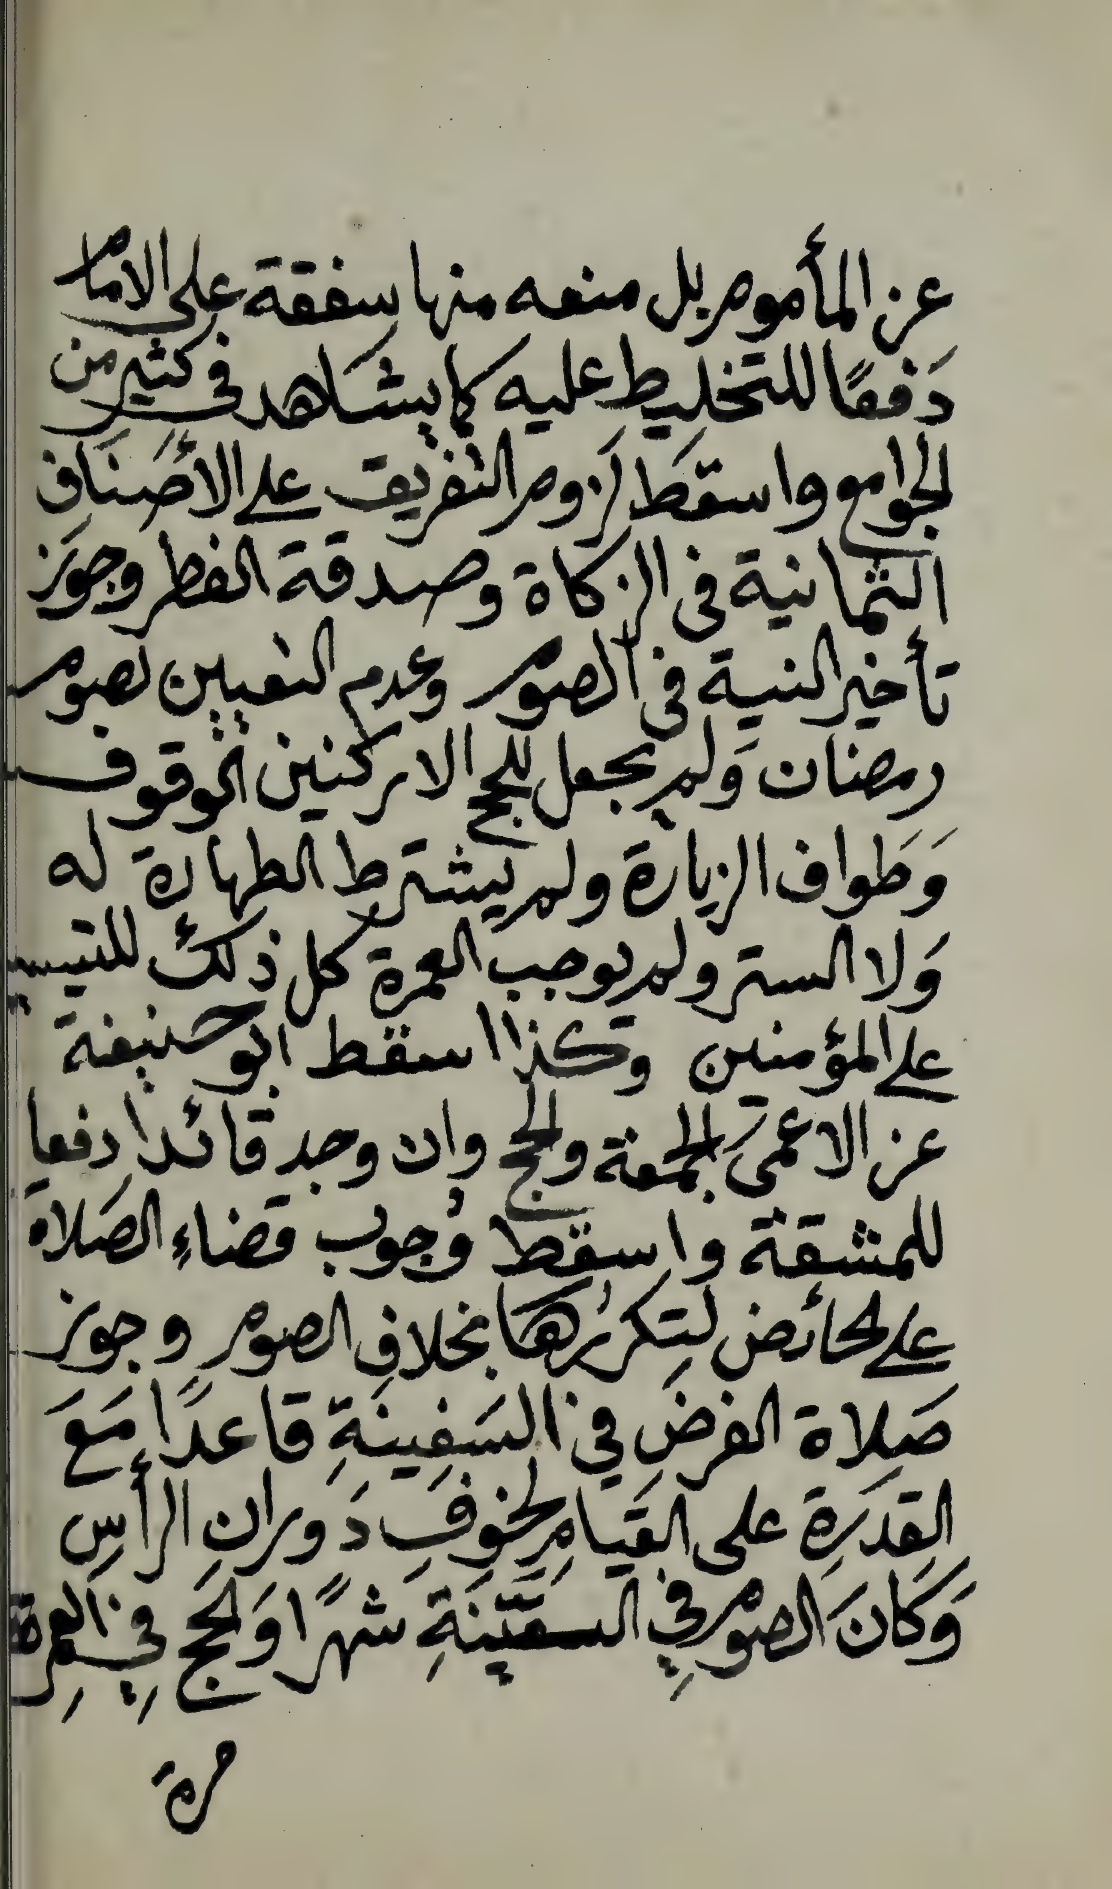 عن المأموم بل منعه منها سفقة على الامام
دَفعًا للتخليط عليه كما يشاهد في كثير من
الجوامع واسقط لزوم التفريق على الأصناف
الثمانية في الزكاة وصدقة الفطر وجوز
تأخير النية في الصوم وعدم التعيين لصوم
رمضان ولم يجعل للحج الا ركنين الوقوف
وَطواف الزيارة ولم يشترط الطهارة له
وَلا الستر ولم يوجب العمرة كل ذلك للتيسير
على المؤمنين وكذا اسقط ابو حنيفة
عن الاعمى الجمعة والحج وان وجد قائدا دفعا
للمشقة واسقط وُجوب قضاء الصلاة
على الحائض لتكررها بخلاف الصوم وجوز
صَلاة الفرضِ في السَفِينَةِ قاعدًا مَعَ
القدرَةِ على القيامِ لخوفِ دَورانِ الرأسِ
وَكانَ الصوم في السفينَةِ شهرًا وَالحج فِي العمرة
مرة